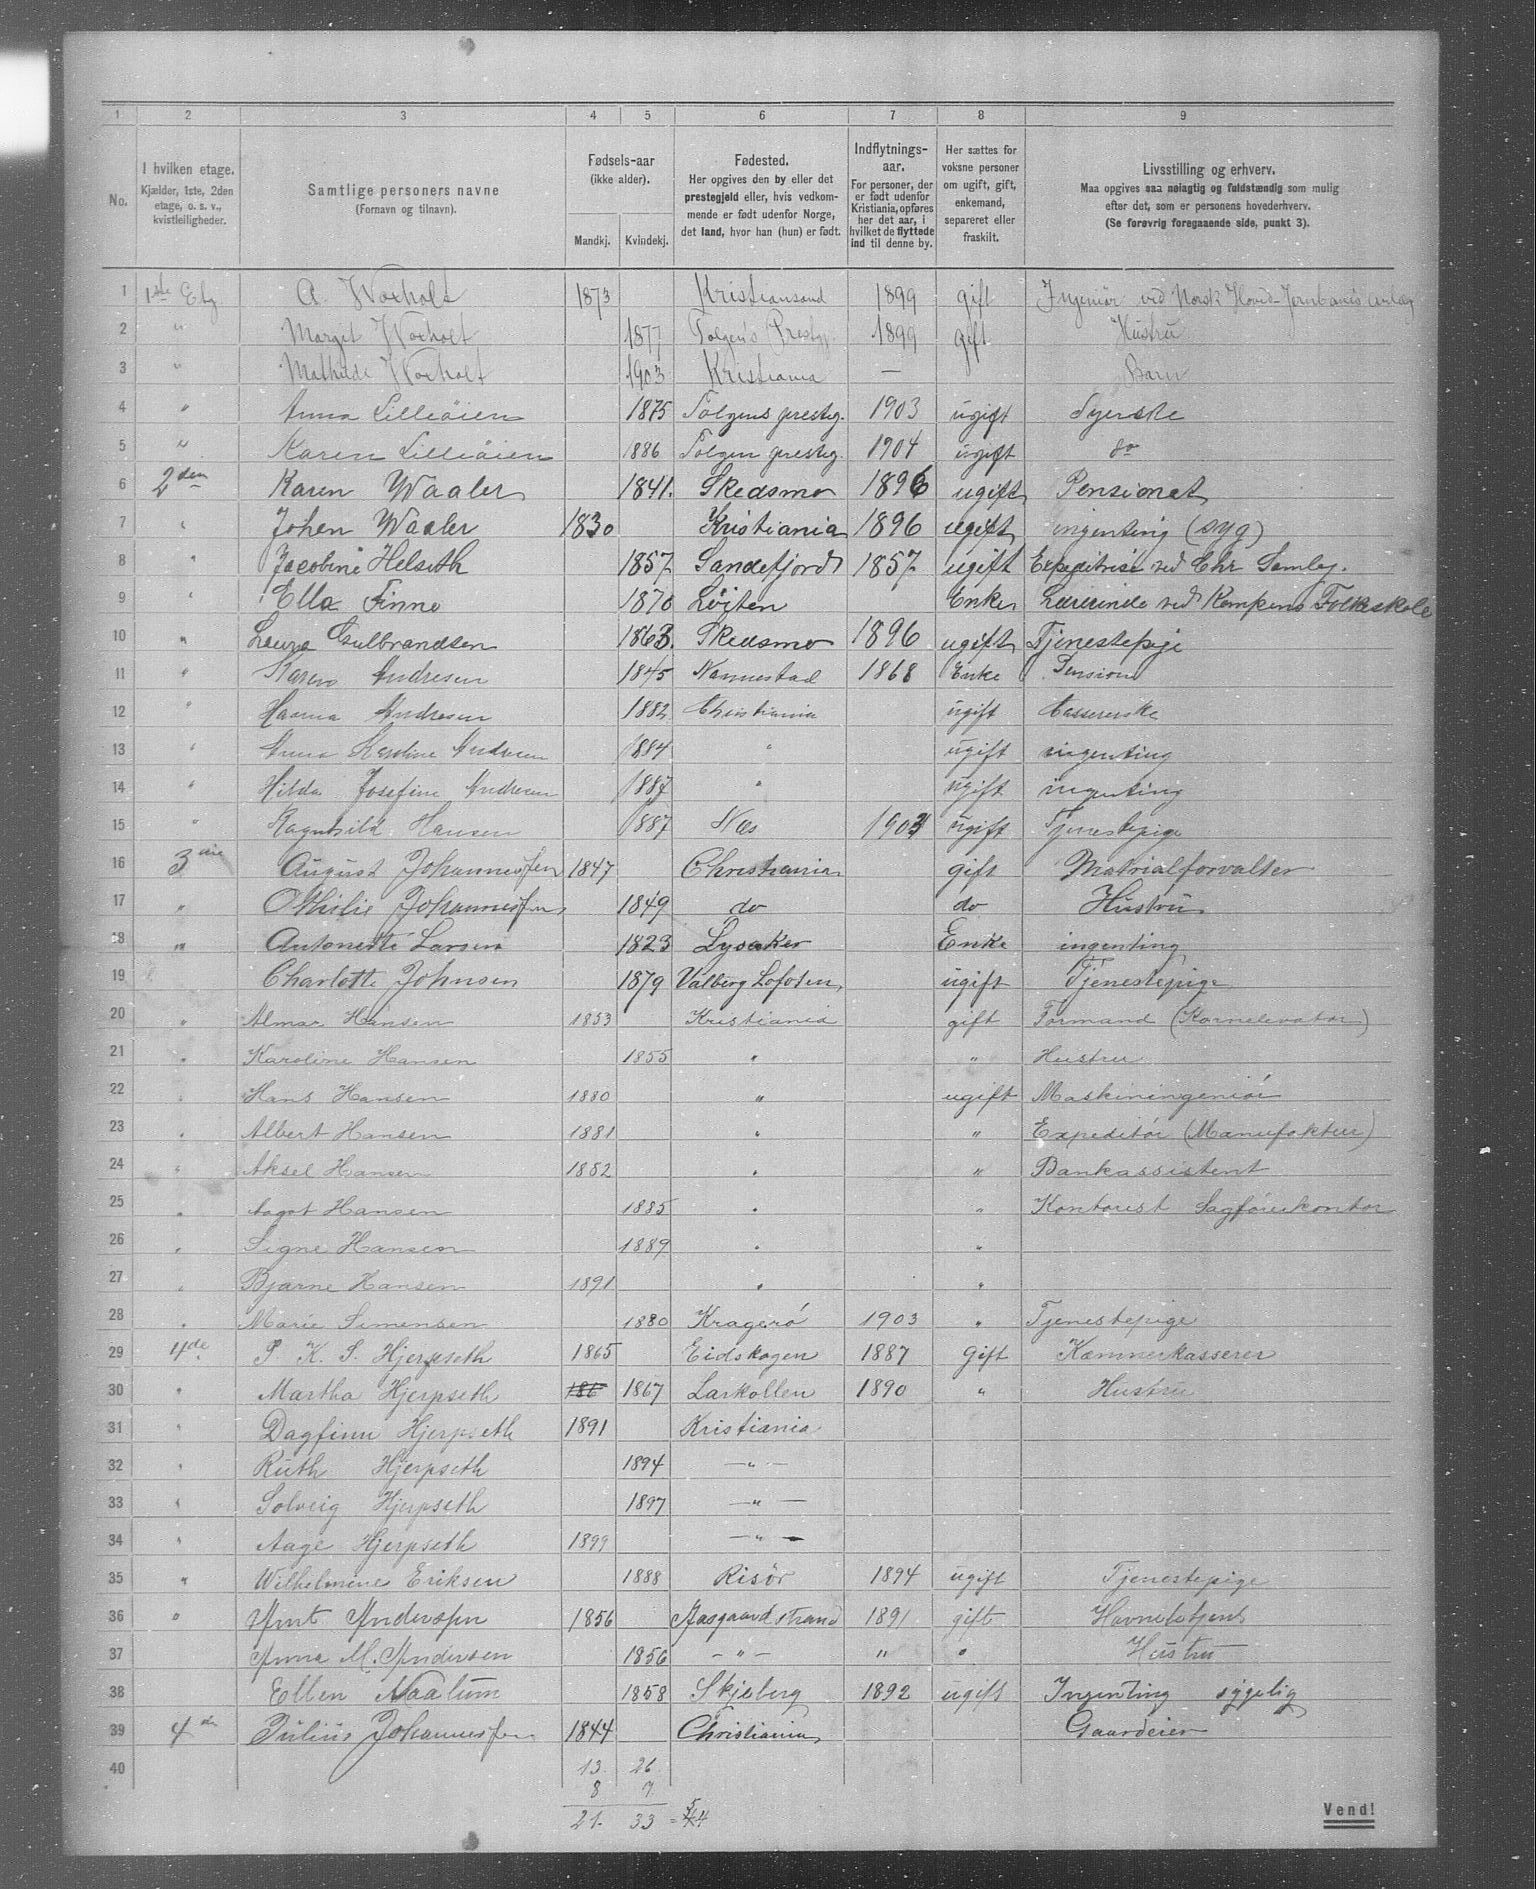 1 2 3 4 5 6 7 8 9
No. | I hvilken etage. Kjælder, 1ste, 2den etage, o. s. v., kvistleiligheder. | Samtlige personers navne (Fornavn og tilnavn). | Fødsels-aar (ikke alder). Mandkj. Kvindekj. | Fødested. Her opgives den by eller det prestegjeld eller, hvis vedkommende er født udenfor Norge, det land, hvor han (hun) er født. | Indflytnings-aar. For personer, der er født udenfor Kristiania, opføres her det aar, i hvilket de flyttede ind til denne by. | Her sættes for voksne personer om ugift, gift, enkemand, separeret eller fraskilt. | Livsstilling og erhverv. Maa opgives saa nøiagtig og fuldstændig som mulig efter det, som er personens hovederhverv. (Se forøvrig foregaaende side, punkt 3).
1 1ste Etg. A. Woxholt 1873 Kristiansand 1899 gift Ingeniör ved Norsk Hoved-Jernbanes anlæg
2 " Margit Woxholt 1877 Tolgen's Prestg. 1899 gift Hustru
3 " Mathilde Woxholt 1903 Kristiania — Barn
4 " Anna Lilleöien 1875 Tolgens presteg. 1903 ugift Syerske
5 " Karen Lilleöien 1886 Tolgen presteg. 1904 ugift do
6 2den Karen Waaler 1841. Skedsmo 1896 ugift Pensionat
7 " Johan Waaler 1830 Kristiania 1896 ugift ingenting (syg)
8 " Jacobine Helseth 1857 Sandefjord 1857 ugift Expeditrise ved Chr Samlag.
9 " Ella Finne 1870 Löiten Enke Lærerinde ved Kampens Folkeskole
10 " Laura Gulbrandsen 1863. Skedsmo 1896 ugift Tjenestepige
11 " Karen Andresen 1845 Nannestad 1868 Enke Pension
12 " Hanna Andresen 1882 Christiania ugift Cassererske
13 " Anna Karoline Andresen 1884 " ugift ingenting
14 " Hilda Josefine Andresen 1887 " ugift ingenting
15 " Ragnhild Hansen 1887 Næs 1903 ugift Tjenestepige
16 3die August Johannessen 1847 Christiania gift Matrialforvalter
17 " Othilie Johannessen 1849 do do Hustru
18 " Antonette Larsen 1823 Lysaker Enke ingenting
19 Charlotte Johnsen 1879 Valberg Lofoten ugift Tjenestepige
20 " Almar Hansen 1853 Kristiania gift Formand (Kornelevator)
21 " Karoline Hansen 1855 " " Hustru
22 " Hans Hansen 1880 " ugift Maskiningeniör
23 " Albert Hansen 1881 " " Expeditör (Manufaktur)
24 " Aksel Hansen 1882 " " Bankassistent
25 " Aagot Hansen 1885 " " Kontorist Sagförerkontor
26 " Signe Hansen 1889 " "
27 " Bjarne Hansen 1891 " "
28 " Marie Simensen 1880 Kragerö 1903 " Tjenestepige
29 4de P. K. S. Hjerpseth 1865 Eidskogen 1887 Gift Kæmnerkasserer
30 " Martha Hjerpseth 186 1867 Larkollen 1890 " Hustru
31 " Dagfinn Hjerpseth 1891 Kristiania
32 " Ruth Hjerpseth 1894 — " —
33 " Solveig Hjerpseth 1897 — " —
34 " Aage Hjerpseth 1899 — " —
35 " Wilhelmine Eriksen 1888 Risör 1894 ugift Tjenestepige
36 " Arnt Andersen 1856 Aasgaardstrand 1891 gift Havnebetjent
37 Anna M. Andersen 1856 — " — " " Hustru
38 Ellen Naalum 1858 Skjeberg 1892 ugift Ingenting sygelig
39 4de Julius Johannessen 1844 Christiania Gaardeier
40 13 26
8 7
21. 33 = 54
Vend!